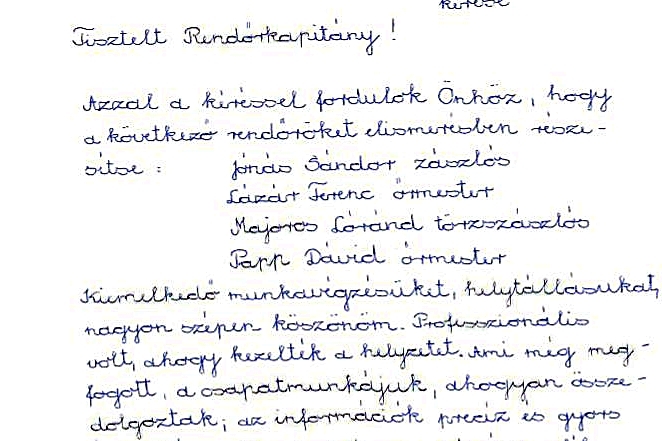 kérése
Tisztelt Rendőrkapitány!
Azzal a kéréssel fordulok Önhöz, hogy
a következő rendőröket elismerésben része-
sítse:    Jónás Sándor zászlós
Lázár Ferenc őrmester
Majoros Lóránd törzszászlós
Papp Dávid őrmester
Kiemelkedő munkavégzésüket, helytállásukat,
nagyon szépen köszönöm. Professzionális
volt, ahogy kezelték a helyzetet. Ami még meg-
fogott, a csapatmunkájuk, ahogyan össze-
dolgoztak; az információk precíz és gyors